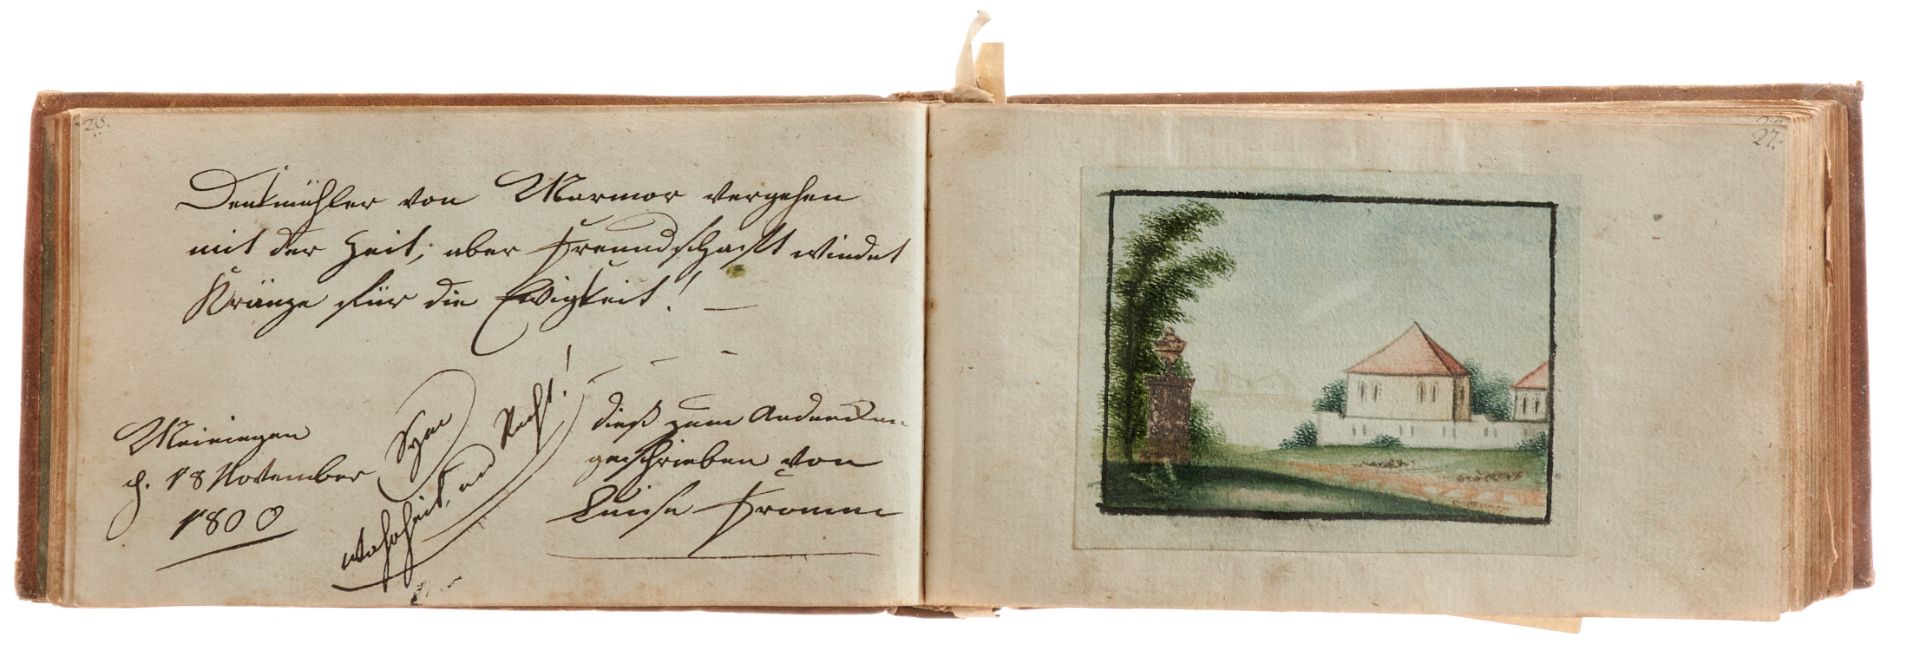 26.
Denkmähler von Marmor vergehen
mit der Zeit, aber Freundschafft windet
Kränze für die Ewigkeit!
Meiningen
d. 18 November
1800
Symb
Wahrheit und Recht!
dieß zum Andencken
geschrieben von
Luise Fromm
27.